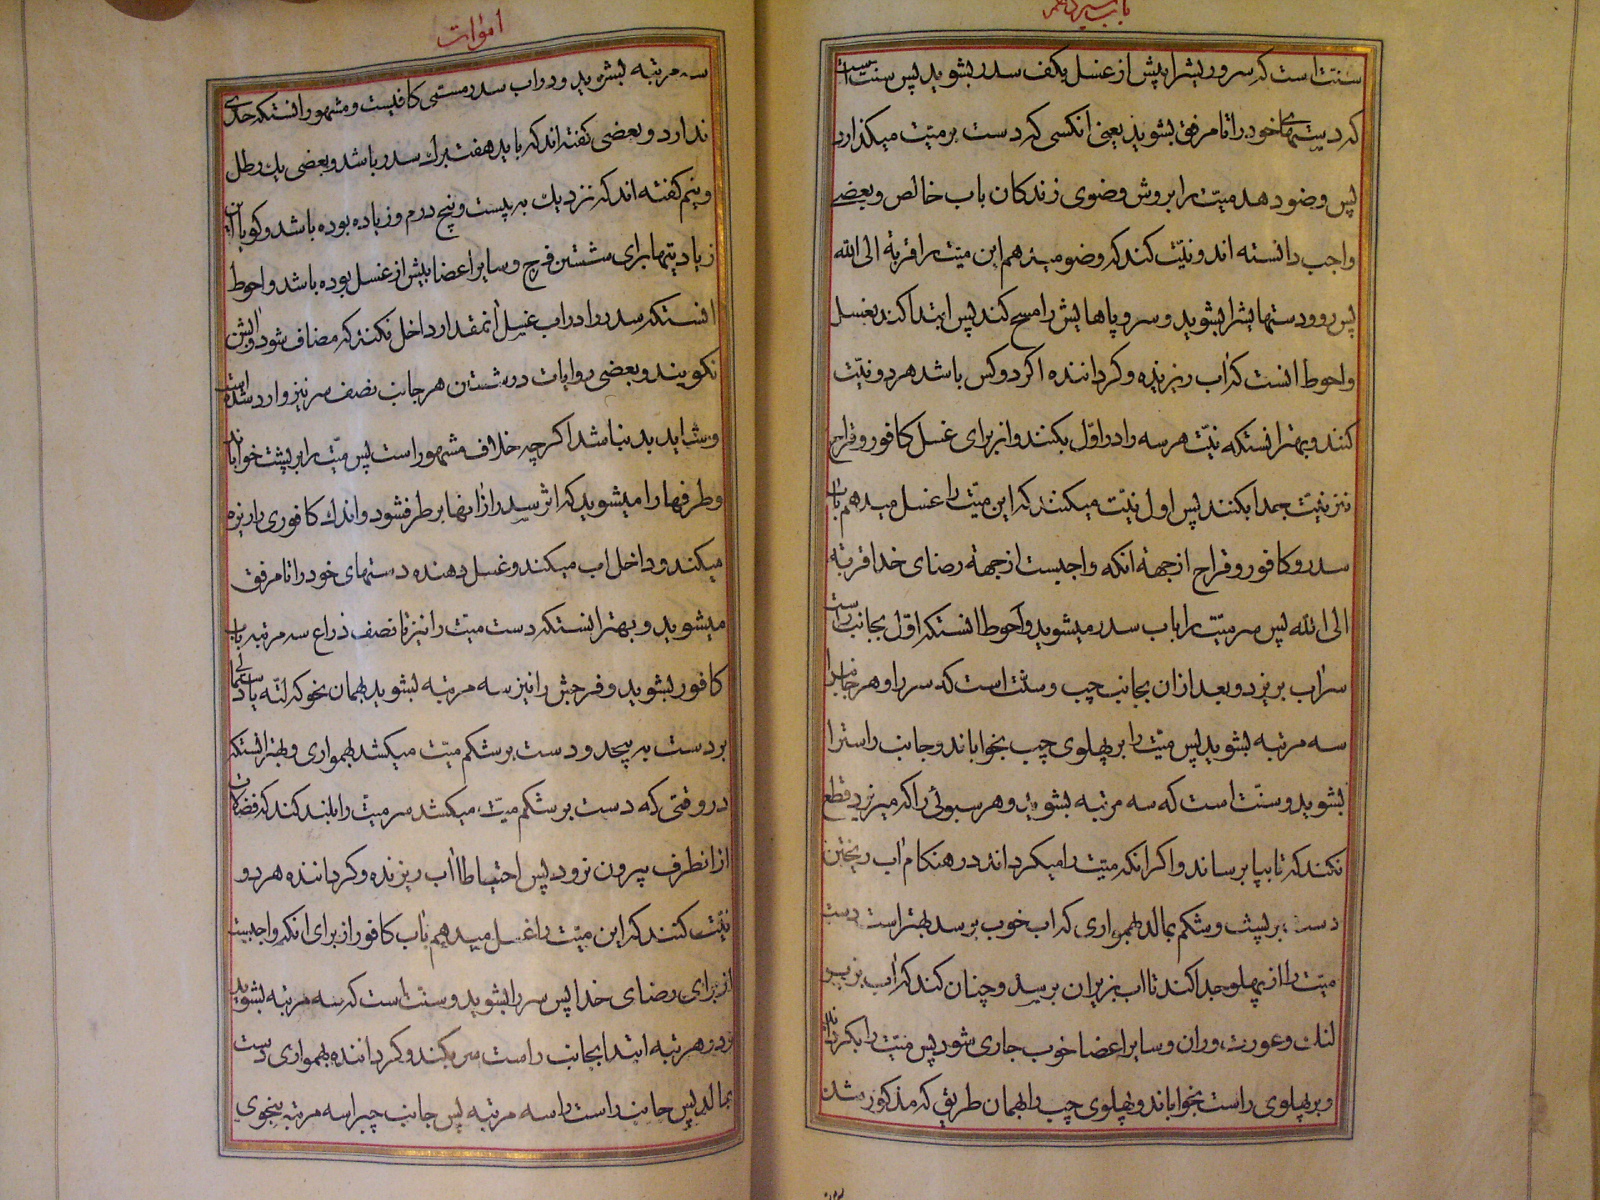 باب سیزدهم
سنت است که سر و ریشرا پیش از غسل بکف سدر بشوید پس سنت است
که دستهای خود را تا مرفق بشوید یعنی انکسی که دست بر میت میکذارد
پس وضو دهد میت را بروش وضوی زندکان باب خالص و بعضی
واجب دانسته اند و نیت کند که وضو میدهم این میت را قربة الی الله
پس رو و دستهایشرا بشوید و سر و پاهایش را مسح کند پس ابتدا کند بغسل
و احوط انست که اب ریزنده و کرداننده اکر دو کس باشد هر دو نیت
کنند و بهتر انستکه نیت هر سه را در اول بکنند و از برای غسل کافور و قراح
نیز نیت جدا بکنند پس اول نیت میکنند که این میت را غسل میدهم باب
سدر و کافور و قراح از جهة انکه واجبست از جهة رضای خدا قربة
الی الله پس سر میت را باب سدر میشوید و احوط انستکه اول بجانب راست
سر اب بریزد و بعد از ان بجانب چپ و سنت است که سر را و هر جانبرا
سه مرتبه بشوید پس میت را بر پهلوی چپ بخواباند و جانب راسترا
بشوید و سنت است که سه مرتبه بشوید و هر سبوئی را که میریزد قطع
نکند که تا بپا برساند و اکر انکه میت را میکرداند در هنکام اب ریختن
دست بر پشت و شکم بمالد بهمواری که اب خوب برسد بهتر است و دست
میت را از پهلو جدا کند تا اب بزیر ان برسد و چنان کند که اب بزیر
لنک و عورت و ران و سایر اعضا خوب جاری شود پس میت را بکرداند
و بر پهلوی راست بخواباند و پهلوی چپ را بهمان طریق که مذکور شد
اموات
سه مرتبه بشوید و در اب سدر مسمی کافیست و مشهور انستکه حدی
ندارد و بعضی کفته اند که باید هفت برك سدر باشد و بعضی یك رطل
و نیم کفته اند که نزدیك به بیست و پنج درم و زیاده بوده باشد و کویا این
زیادیتها برای شستن فرج و سایر اعضا پیش از غسل بوده باشد و احوط
انستکه سدر را در اب غسل انمقدار داخل نکنند که مضاف شود و ابش
نکویند و بعضی روایات در شستن هر جانب نصف سر نیز وارد شده است
و شاید بد نباشد اکرچه خلاف مشهور است پس میت را بر پشت خواباند
و طرفها را میشوید که اثر سدر از انها بر طرف شود و اندك کافوری را ریزه
میکند و داخل اب میکند و غسل دهنده دستهای خود را تا مرفق
میشوید و بهتر انستکه دست میت را نیز تا نصف ذراع سه مرتبه باب
کافور بشوید و فرجش را نیز سه مرتبه بشوید بهمان نحو که لته یا دستمالی
بر دست به پیچد و دست بر شکم میت میکشد بهمواری و بهتر انستکه
در وقتی که دست بر شکم میت میکشد سر میت را بلند کند که فضلات
از انطرف بیرون نرود پس احتیاطا اب ریزنده و کرداننده هر دو
نیت کنند که این میت را غسل میدهم باب کافور از برای انکه واجبست
از برای رضای خدا پس سر را بشوید و سنت است که سه مرتبه بشوید
و در هر مرتبه ابتدا بجانب راست سر بکند و کرداننده بهمواری دست
بمالد پس جانب راست را سه مرتبه پس جانب چپ را سه مرتبه بنحوی